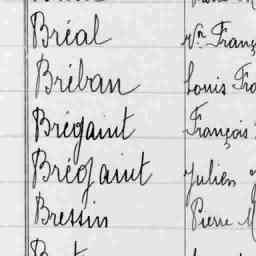 Bréal Vn Franç
Bréban Louis Fra
Brégaint François
Brégaint Julien
Bressin Pierre M